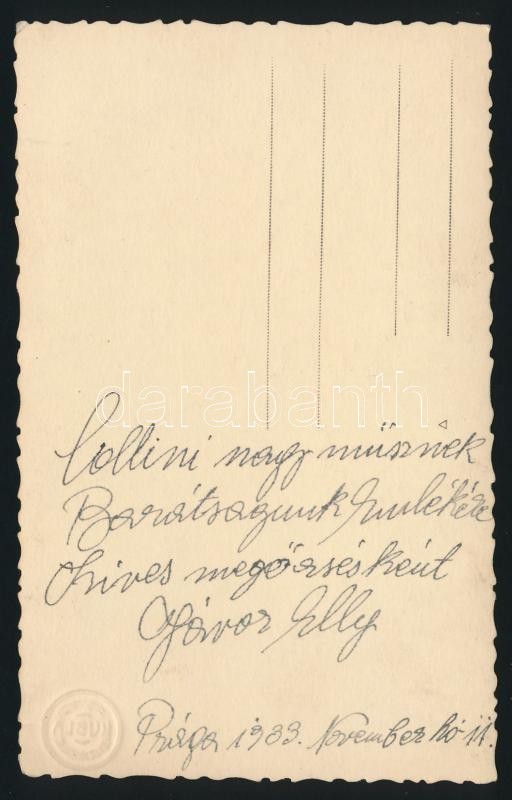 Collini nagy müsznek
Barátsagunk Emlékére
Szives megőrzésként
Jávor Elly
Prága 1933. November hó 11.
darabanth